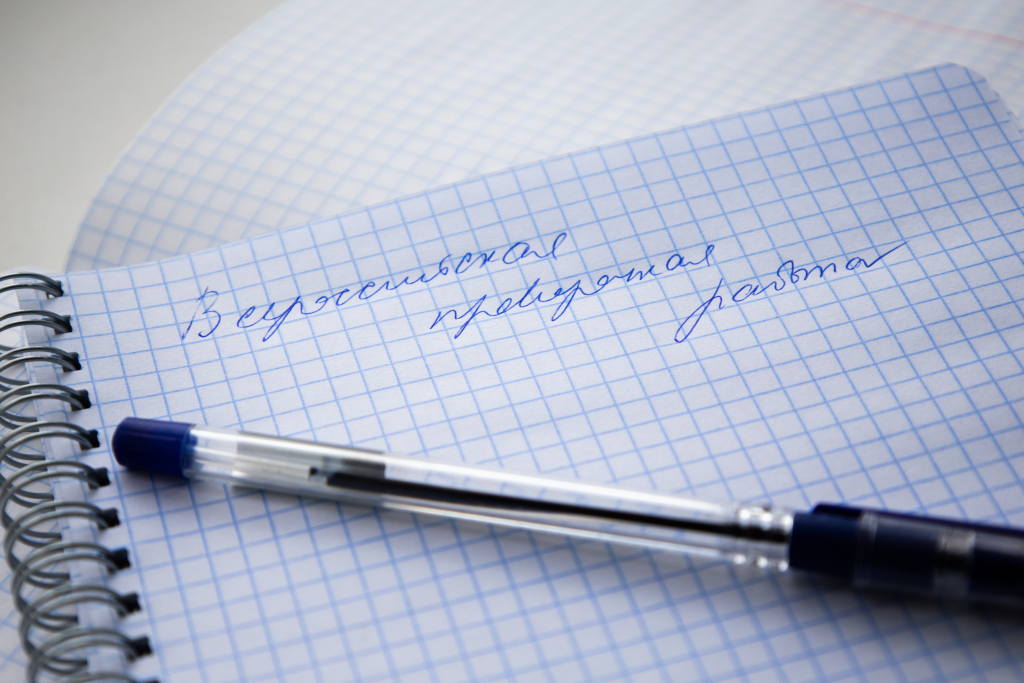 Всероссийская
проверочная
работа